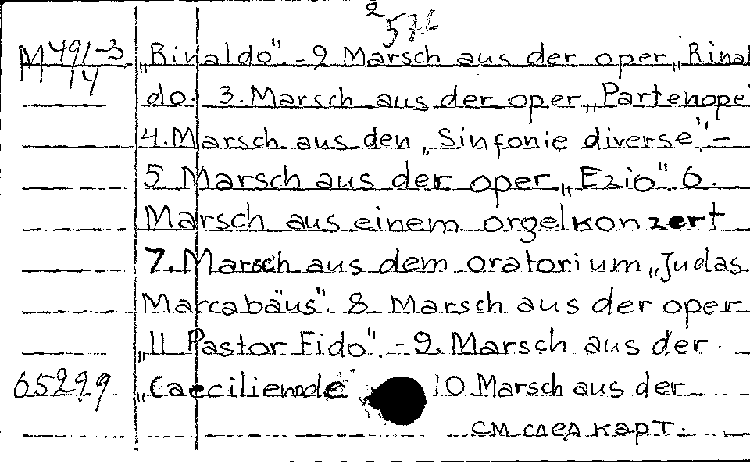 2
572
M 491-3 „Rinaldo“. - 2. Marsch aus der oper „Rinal
14
do. 3. Marsch aus der oper „Partenope“
4. Marsch aus den „Sinfonie diverse“. -
5 Marsch aus der oper „Ezio“. 6.
Marsch aus einem orgelkonzert
7. Marsch aus dem oratorium „Judas
Marcabäus“. 8. Marsch aus der oper
„Il Pastor Fido“. - 9. Marsch aus der
65299 „Caecilienode“ 10 Marsch aus der
см след карт.